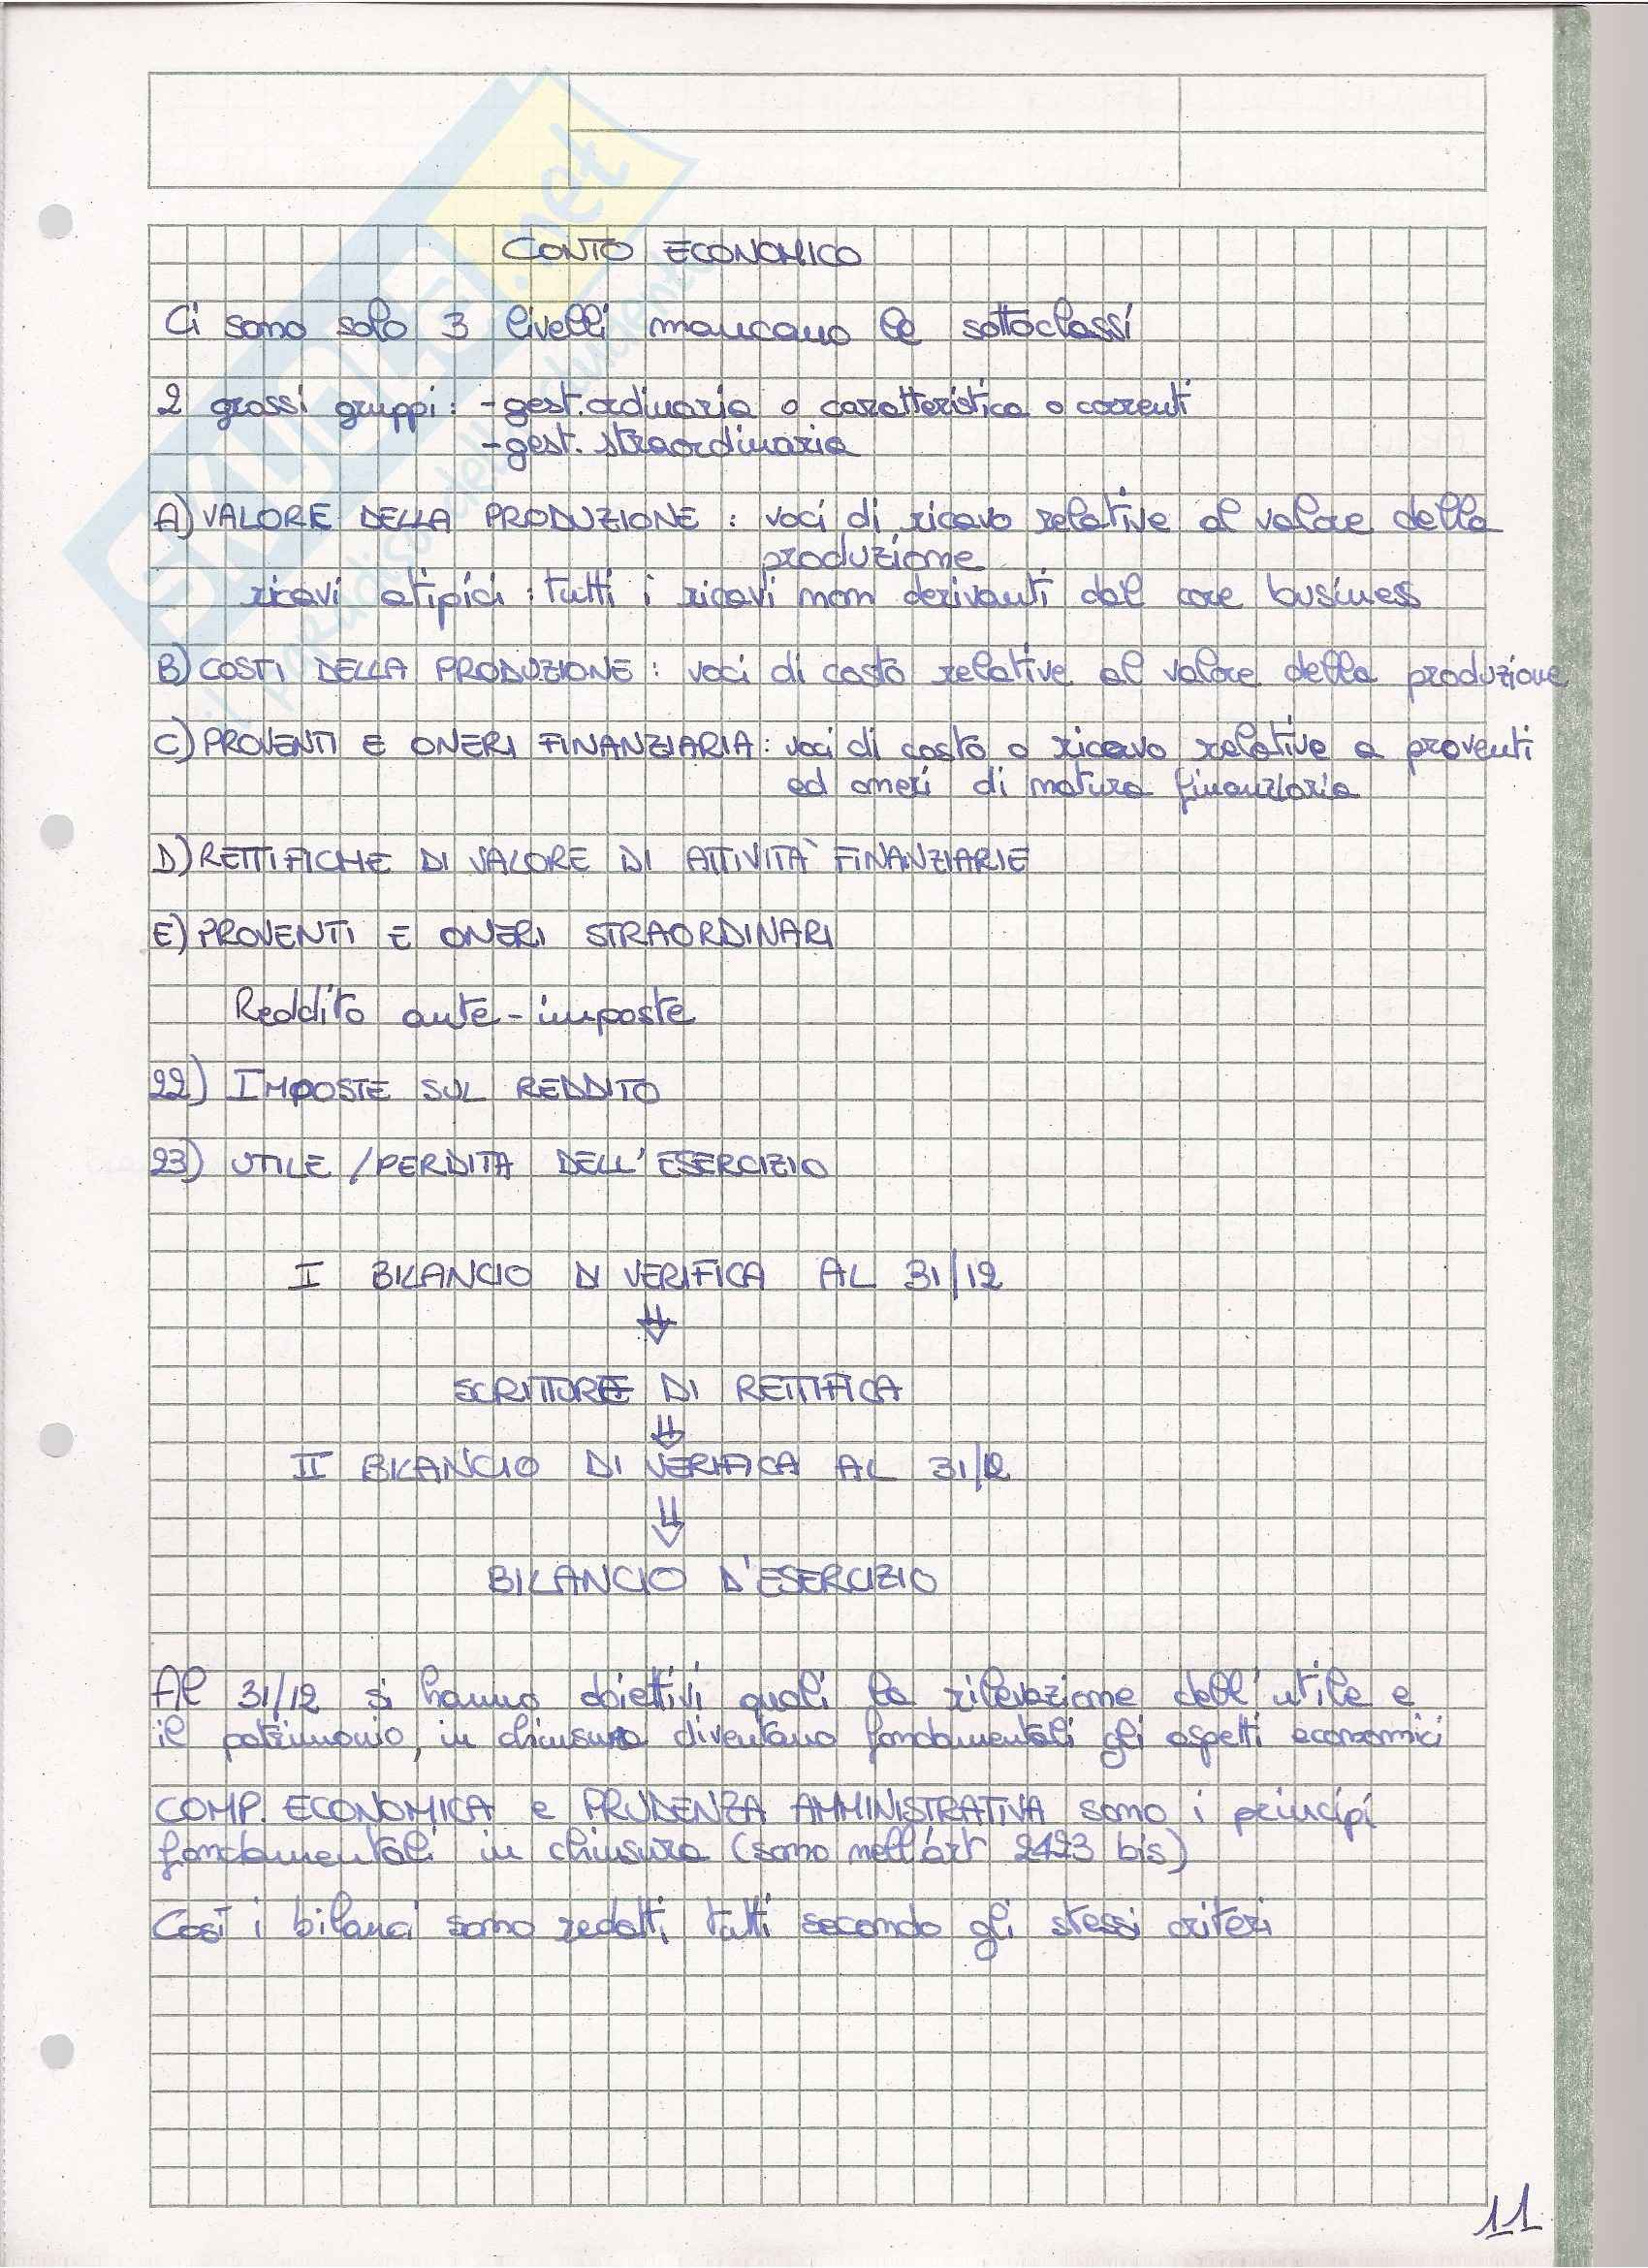 CONTO ECONOMICO
Ci sono solo 3 livelli mancano le sottoclassi
2 grossi gruppi: - gest. ordinaria o caratteristica o correnti
- gest. straordinaria
A) VALORE DELLA PRODUZIONE : voci di ricavo relative al valore della
produzione
ricavi atipici : tutti i ricavi non derivanti dal core business
B) COSTI DELLA PRODUZIONE : voci di costo relative al valore della produzione
C) PROVENTI E ONERI FINANZIARIA : voci di costo o ricavo relative a proventi
ed oneri di natura finanziaria
D) RETTIFICHE DI VALORE DI ATTIVITÀ FINANZIARIE
E) PROVENTI E ONERI STRAORDINARI
Reddito ante-imposte
22) IMPOSTE SUL REDDITO
23) UTILE / PERDITA DELL'ESERCIZIO
I BILANCIO DI VERIFICA AL 31/12
SCRITTURE DI RETTIFICA
II BILANCIO DI VERIFICA AL 31/12
BILANCIO D'ESERCIZIO
Al 31/12 si hanno obiettivi quali la rilevazione dell'utile e
il patrimonio, in chiusura diventano fondamentali gli aspetti economici
COMP. ECONOMICA e PRUDENZA AMMINISTRATIVA sono i principi
fondamentali in chiusura (sono nell'art 2423 bis)
Così i bilanci sono redatti tutti secondo gli stessi criteri
11
SKUOLA.net
il paradiso dello studente